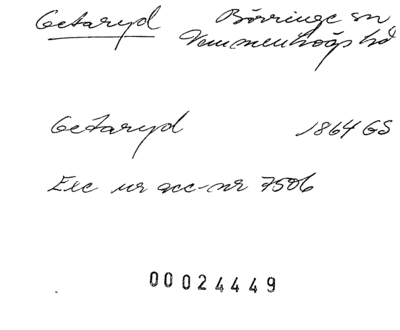 Getaryd Börringe sn
Vemmenhögs hd
Getaryd 1864 GS
Exc ur acc-nr 7506
00024449